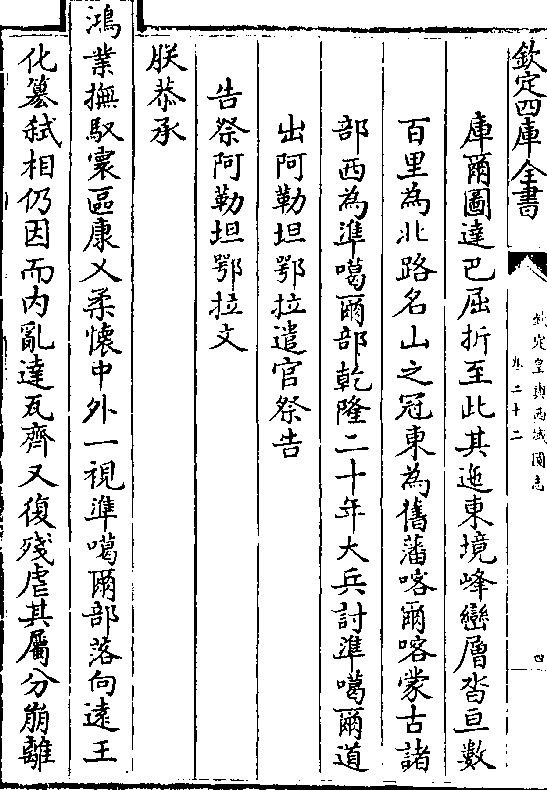 欽定四庫全書
欽定皇輿西域圖志
卷二十二
四
庫爾圖達巴屈折至此其迤東境峰巒層沓亘數
百里為北路名山之冠東為舊藩喀爾喀蒙古諸
部西為準噶爾部乾隆二十年大兵討準噶爾道
出阿勒坦鄂拉遣官祭告
告祭阿勒坦鄂拉文
朕恭承
鴻業撫馭寰區康乂柔懷中外一視準噶爾部落向遠王
化篡弒相仍因而內亂達瓦齊又復殘虐其屬分崩離